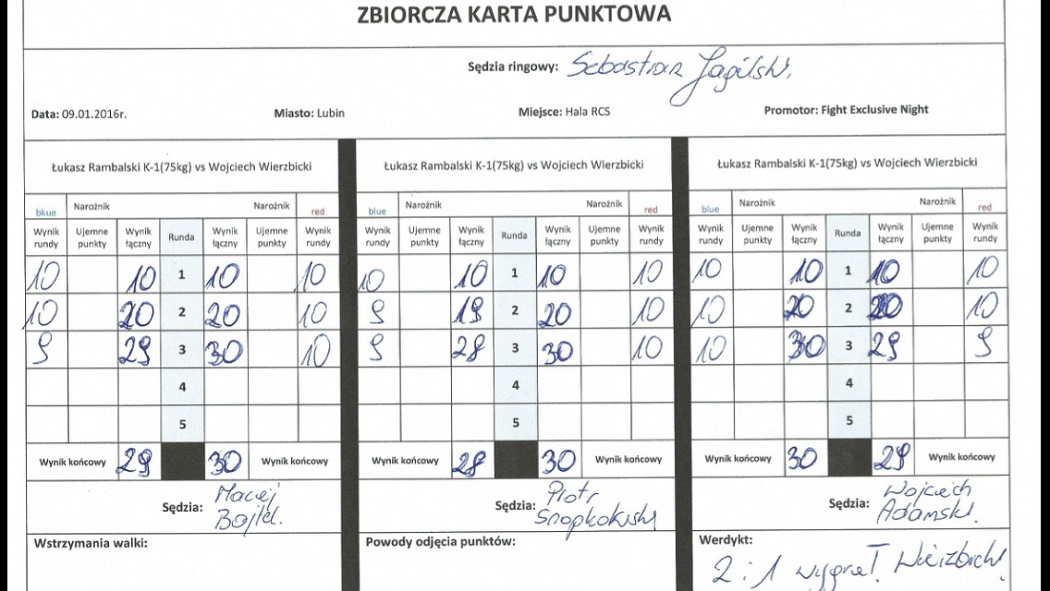 ZBIORCZA KARTA PUNKTOWA
Sędzia ringowy: Sebastian Jagilski.
Data: 09.01.2016r. Miasto: Lubin Miejsce: Hala RCS Promotor: Fight Exclusive Night
Łukasz Rambalski K-1(75kg) vs Wojciech Wierzbicki
bkue Narożnik Narożnik red
Wynik rundy Ujemne punkty Wynik łączny Runda Wynik łączny Ujemne punkty Wynik rundy
10 10 1 10 10
10 20 2 20 10
9 29 3 30 10
4
5
Wynik końcowy 29 30 Wynik końcowy
Sędzia: Maciej
Łukasz Rambalski K-1(75kg) vs Wojciech Wierzbicki
blue Narożnik Narożnik red
Wynik rundy Ujemne punkty Wynik łączny Runda Wynik łączny Ujemne punkty Wynik rundy
10 10 1 10 10
9 19 2 20 10
9 28 3 30 10
4
5
Wynik końcowy 28 30 Wynik końcowy
Sędzia: Piotr
Łukasz Rambalski K-1(75kg) vs Wojciech Wierzbicki
blue Narożnik Narożnik red
Wynik rundy Ujemne punkty Wynik łączny Runda Wynik łączny Ujemne punkty Wynik rundy
10 10 1 10 10
10 20 2 20 10
10 30 3 29 9
4
5
Wynik końcowy 30 29 Wynik końcowy
Sędzia: Wojciech
Adamski.
Wstrzymania walki:
Powody odjęcia punktów:
Werdykt:
2:1 wygrał. Wierzbicki